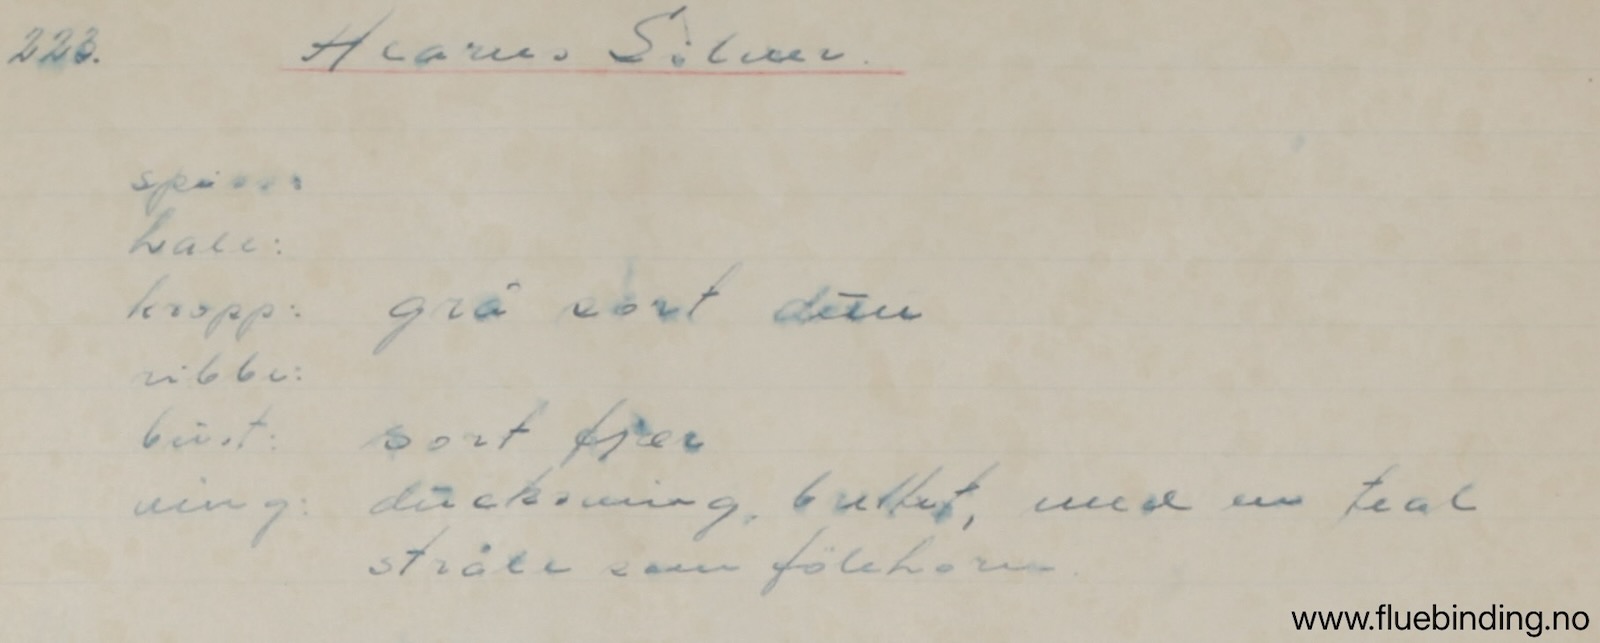 223. Hcarus Silver.
spinn:
hale:
kropp: grå sort dun
ribbe:
bust: sort fjær
ving: duckswing, buttet, med en teal
stråle som følehorn.
www.fluebinding.no